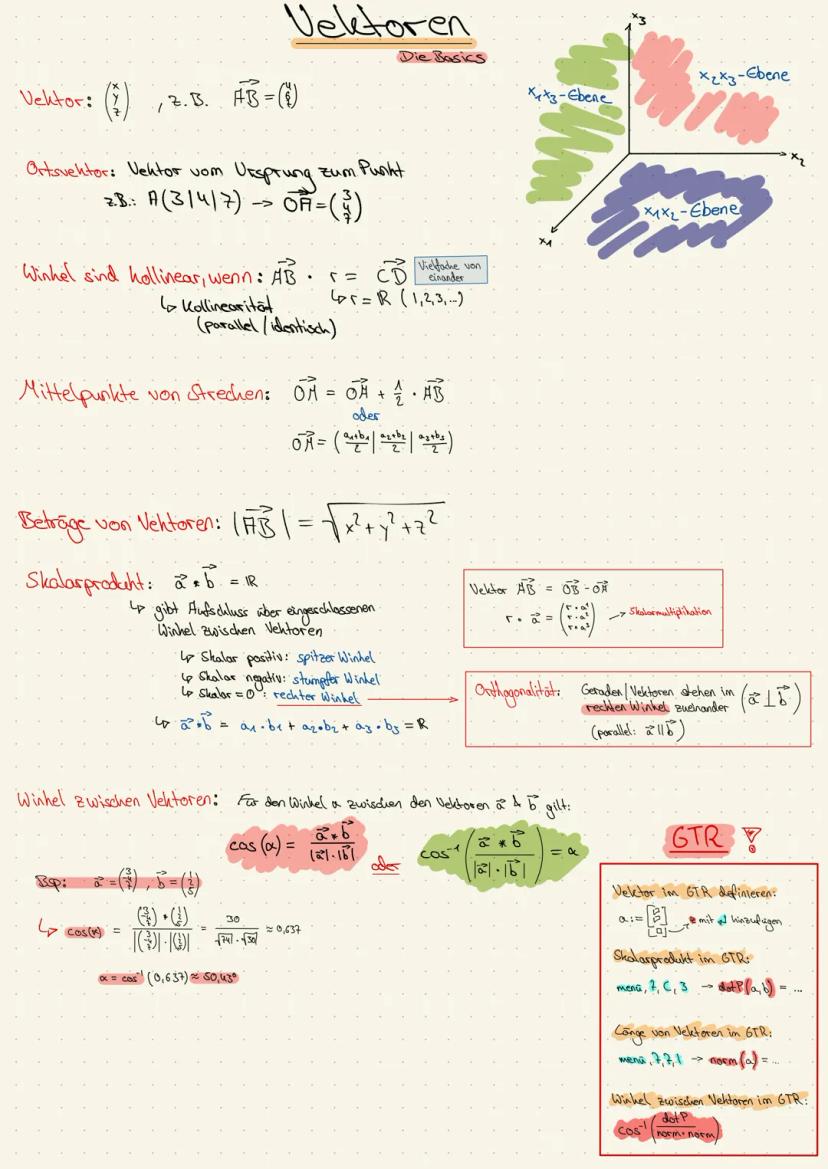 Vektoren
Die Basics
x₃
x₁x₃-Ebene
x₂x₃-Ebene
x₂
x₁x₂-Ebene
x₁
Vektor: (x y z) , z.B. AB⃗ =
Ortsvektor: Vektor vom Ursprung zum Punkt
z.B.: A(3|4|7) → OA⃗ = (3 4 7)
Winkel sind kollinear, wenn: AB⃗ · r = CD⃗
Vielfache von
einander
↳ r = ℝ (1,2,3,...)
↳ Kollinearität
(parallel / identisch)
Mittelpunkte von Strecken: OM⃗ = OA⃗ + 1/2 · AB⃗
oder
OM⃗ = (a₁+b₁/2 | a₂+b₂/2 | a₃+b₃/2)
Beträge von Vektoren: |AB⃗| = √x²+y²+z²
Skalarprodukt: a⃗ * b⃗ = ℝ
↳ gibt Aufschluss über eingeschlossenen
Winkel zwischen Vektoren
↳ Skalar positiv: spitzer Winkel
↳ Skalar negativ: stumpfer Winkel
↳ Skalar = 0: rechter Winkel
↳ a⃗ * b⃗ = a₁·b₁ + a₂·b₂ + a₃·b₃ = ℝ
Vektor AB⃗ = OB⃗ - OA⃗
r · a⃗ = (r·a¹ r·a² r·a³) → Skalarmultiplikation
Orthogonalität: Geraden/Vektoren stehen im (a⃗ ⊥ b⃗)
rechten Winkel zueinander
(parallel: a⃗ || b⃗)
Winkel zwischen Vektoren: Für den Winkel α zwischen den Vektoren a⃗ & b⃗ gilt:
cos(α) = a⃗ * b⃗ / |a⃗| · |b⃗| oder cos⁻¹(a⃗ * b⃗ / |a⃗| · |b⃗|) = α
Bsp: a⃗ = (3 4 7), b⃗ = (1 2 5)
↳ cos(α) = (3 4 7) * (1 2 5) / |(3 4 7)| · |(1 2 5)| = 30 / √74 · √30 ≈ 0,637
α = cos⁻¹(0,637) ≈ 50,43°
GTR !
Vektor im GTR definieren:
a:= mit ↵ hinzufügen
Skalarprodukt im GTR:
menü, 7, C, 3 → dotP(a,b) = ...
Länge von Vektoren im GTR:
menü, 7, 7, 1 → norm(a) = ...
Winkel zwischen Vektoren im GTR:
cos⁻¹(dotP / norm·norm)